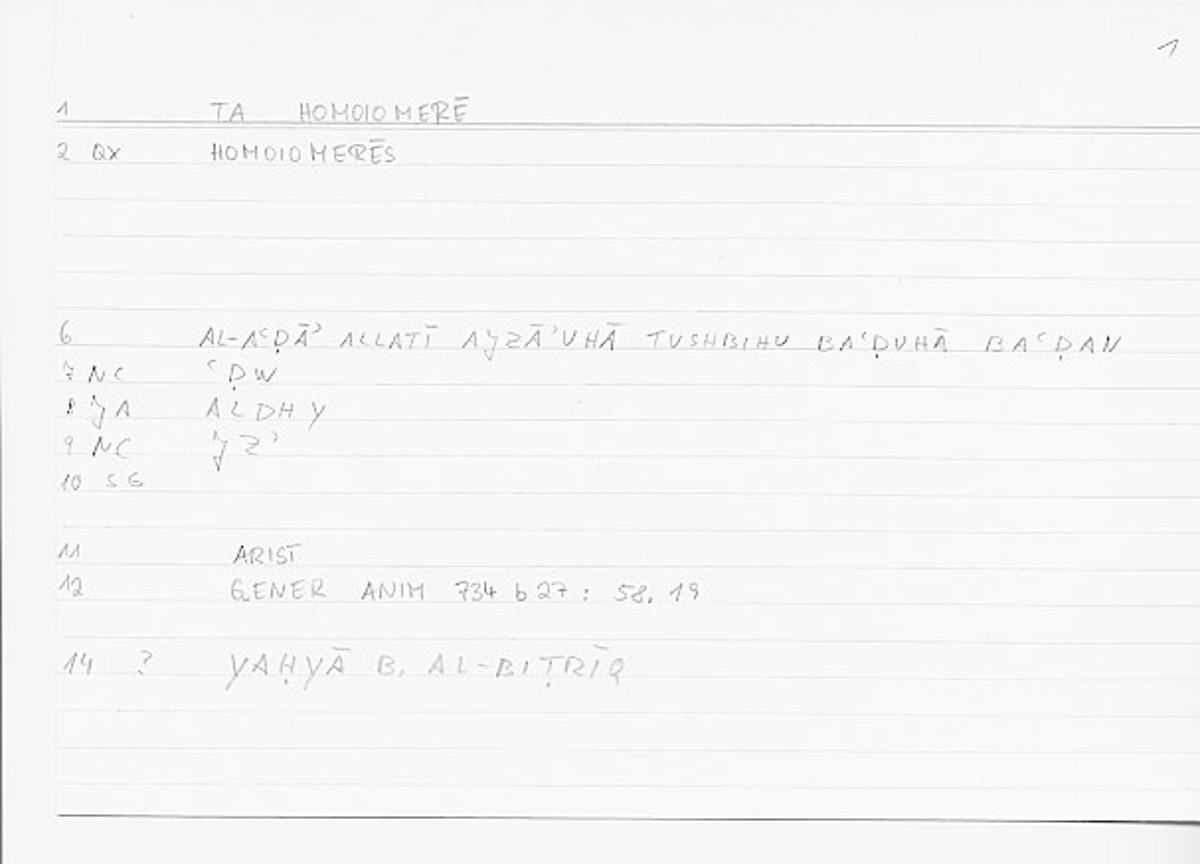 1
1 TA HOMOIOMERĒ
2 QX HOMOIOMERĒS
6 AL-AʿḌĀʾ ALLATĪ AJZĀʾUHĀ TUSHBIHU BAʿḌUHĀ BAʿḌAN
7 NC ʿḌW
8 JA ALDHY
9 NC JZʾ
10 SE
11 ARIST
12 GENER ANIM 734 b 27 : 58, 19
14 ? YAḤYĀ B. AL-BIṬRĪQ